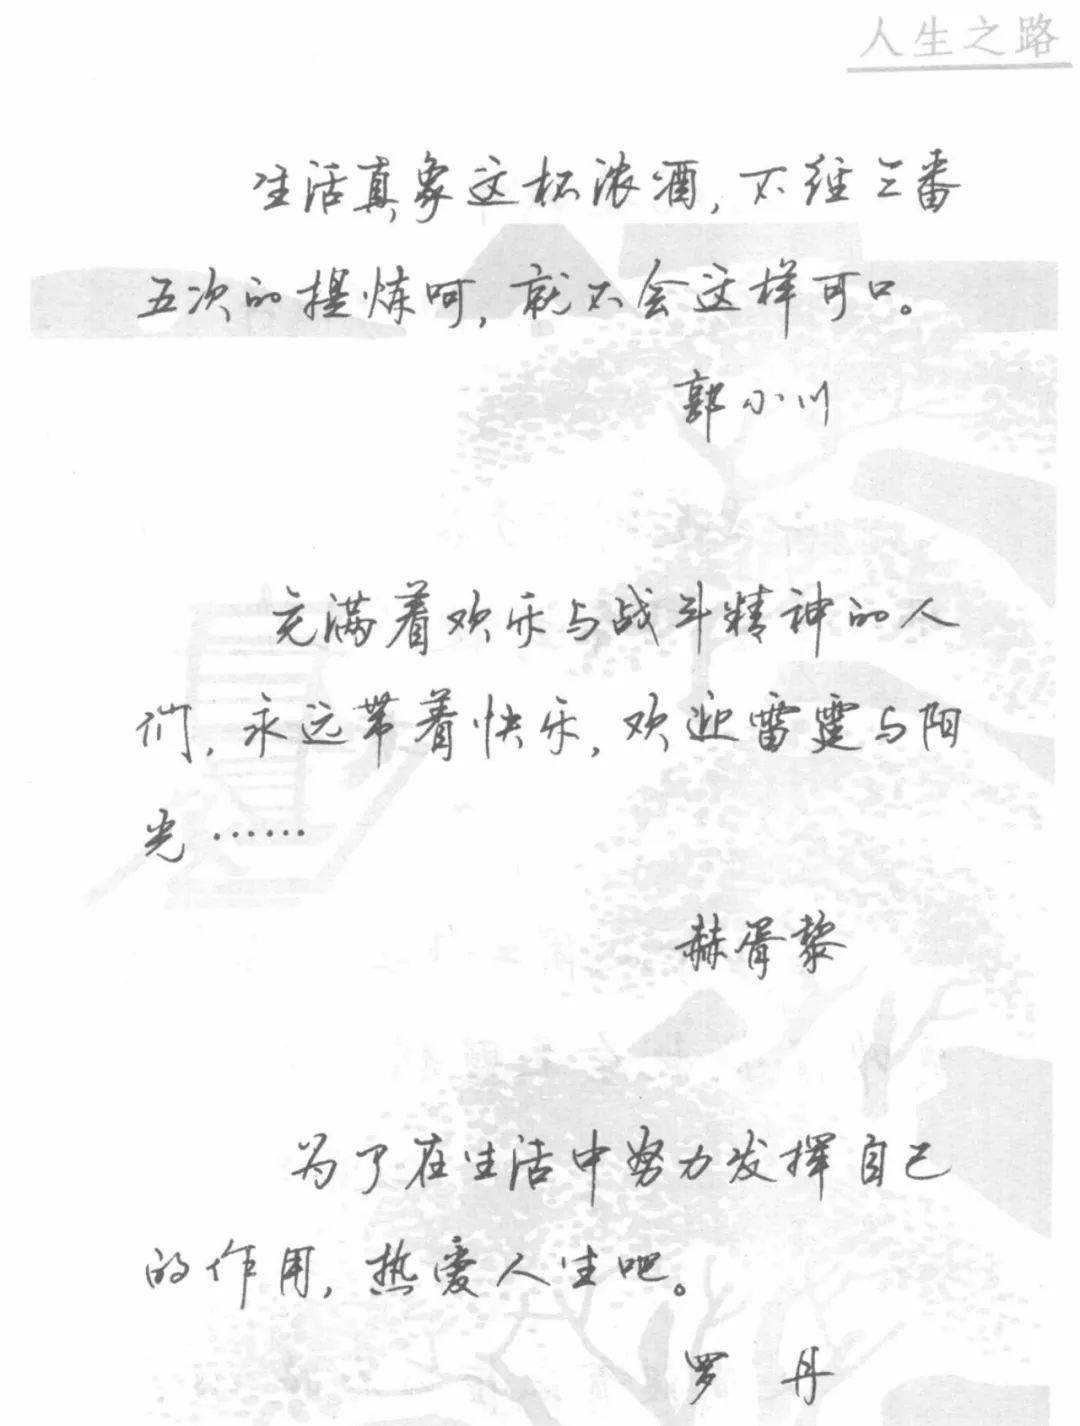 人生之路
生活真象这杯浓酒，不经三番
五次的提炼呵，就不会这样可口。
郭小川
充满着欢乐与战斗精神的人
们，永远带着快乐，欢迎雷霆与阳
光……
赫胥黎
为了在生活中努力发挥自己
的作用，热爱人生吧。
罗丹